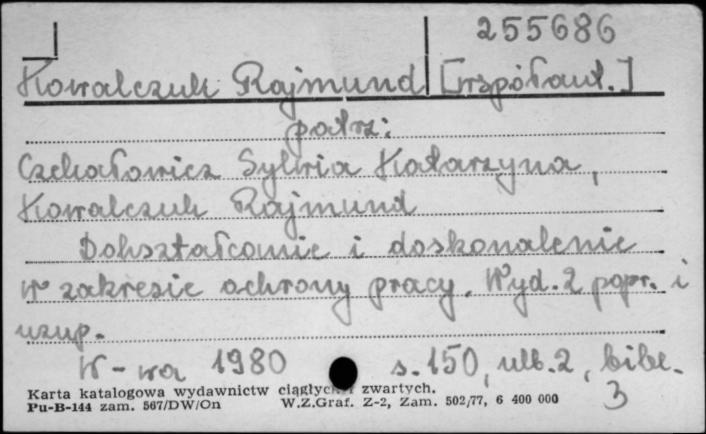 255686
Kowalczuk Rajmund [współaut.]
patrz:
Czekałowicz Sylwia Katarzyna,
Kowalczuk Rajmund
Dokształcanie i doskonalenie
w zakresie ochrony pracy. Wyd. 2 popr. i
uzup.
W-wa 1980 s. 150, nlb. 2, bibl.
Karta katalogowa wydawnictw ciągłych i zwartych.
3
Pu-B-144 zam. 567/DW/On W.Z.Graf. Z-2, Zam. 502/77, 6 400 000